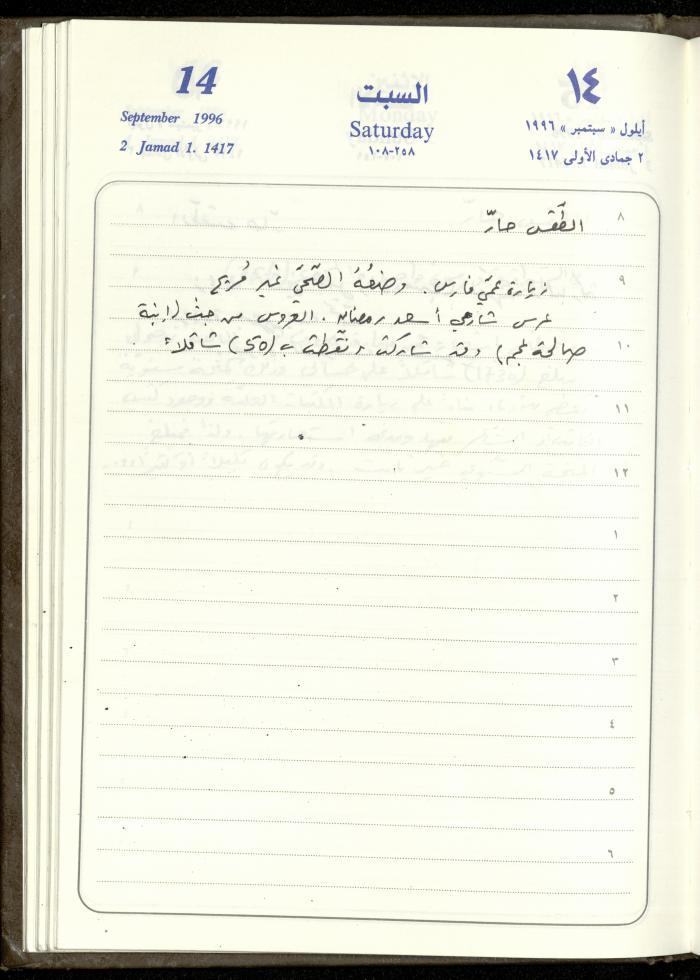 14
السبت
١٤
September 1996
Saturday
أيلول « سبتمبر » ١٩٩٦
2 Jamad 1. 1417
٢٥٨-١٠٨
٢ جمادى الأولى ١٤١٧
٨
الطَّقس حارّ
٩
زيارة عمّي فارس. وضعُهُ الصّحّي غير مُريح
عرس شادي أسعد رمضان. العروس من جث (ابنة
١٠
صالحة نجم) وقد شاركت ونقّطت ب (50) شاقلاً
١١
١٢
١
٢
٣
٤
٥
٦